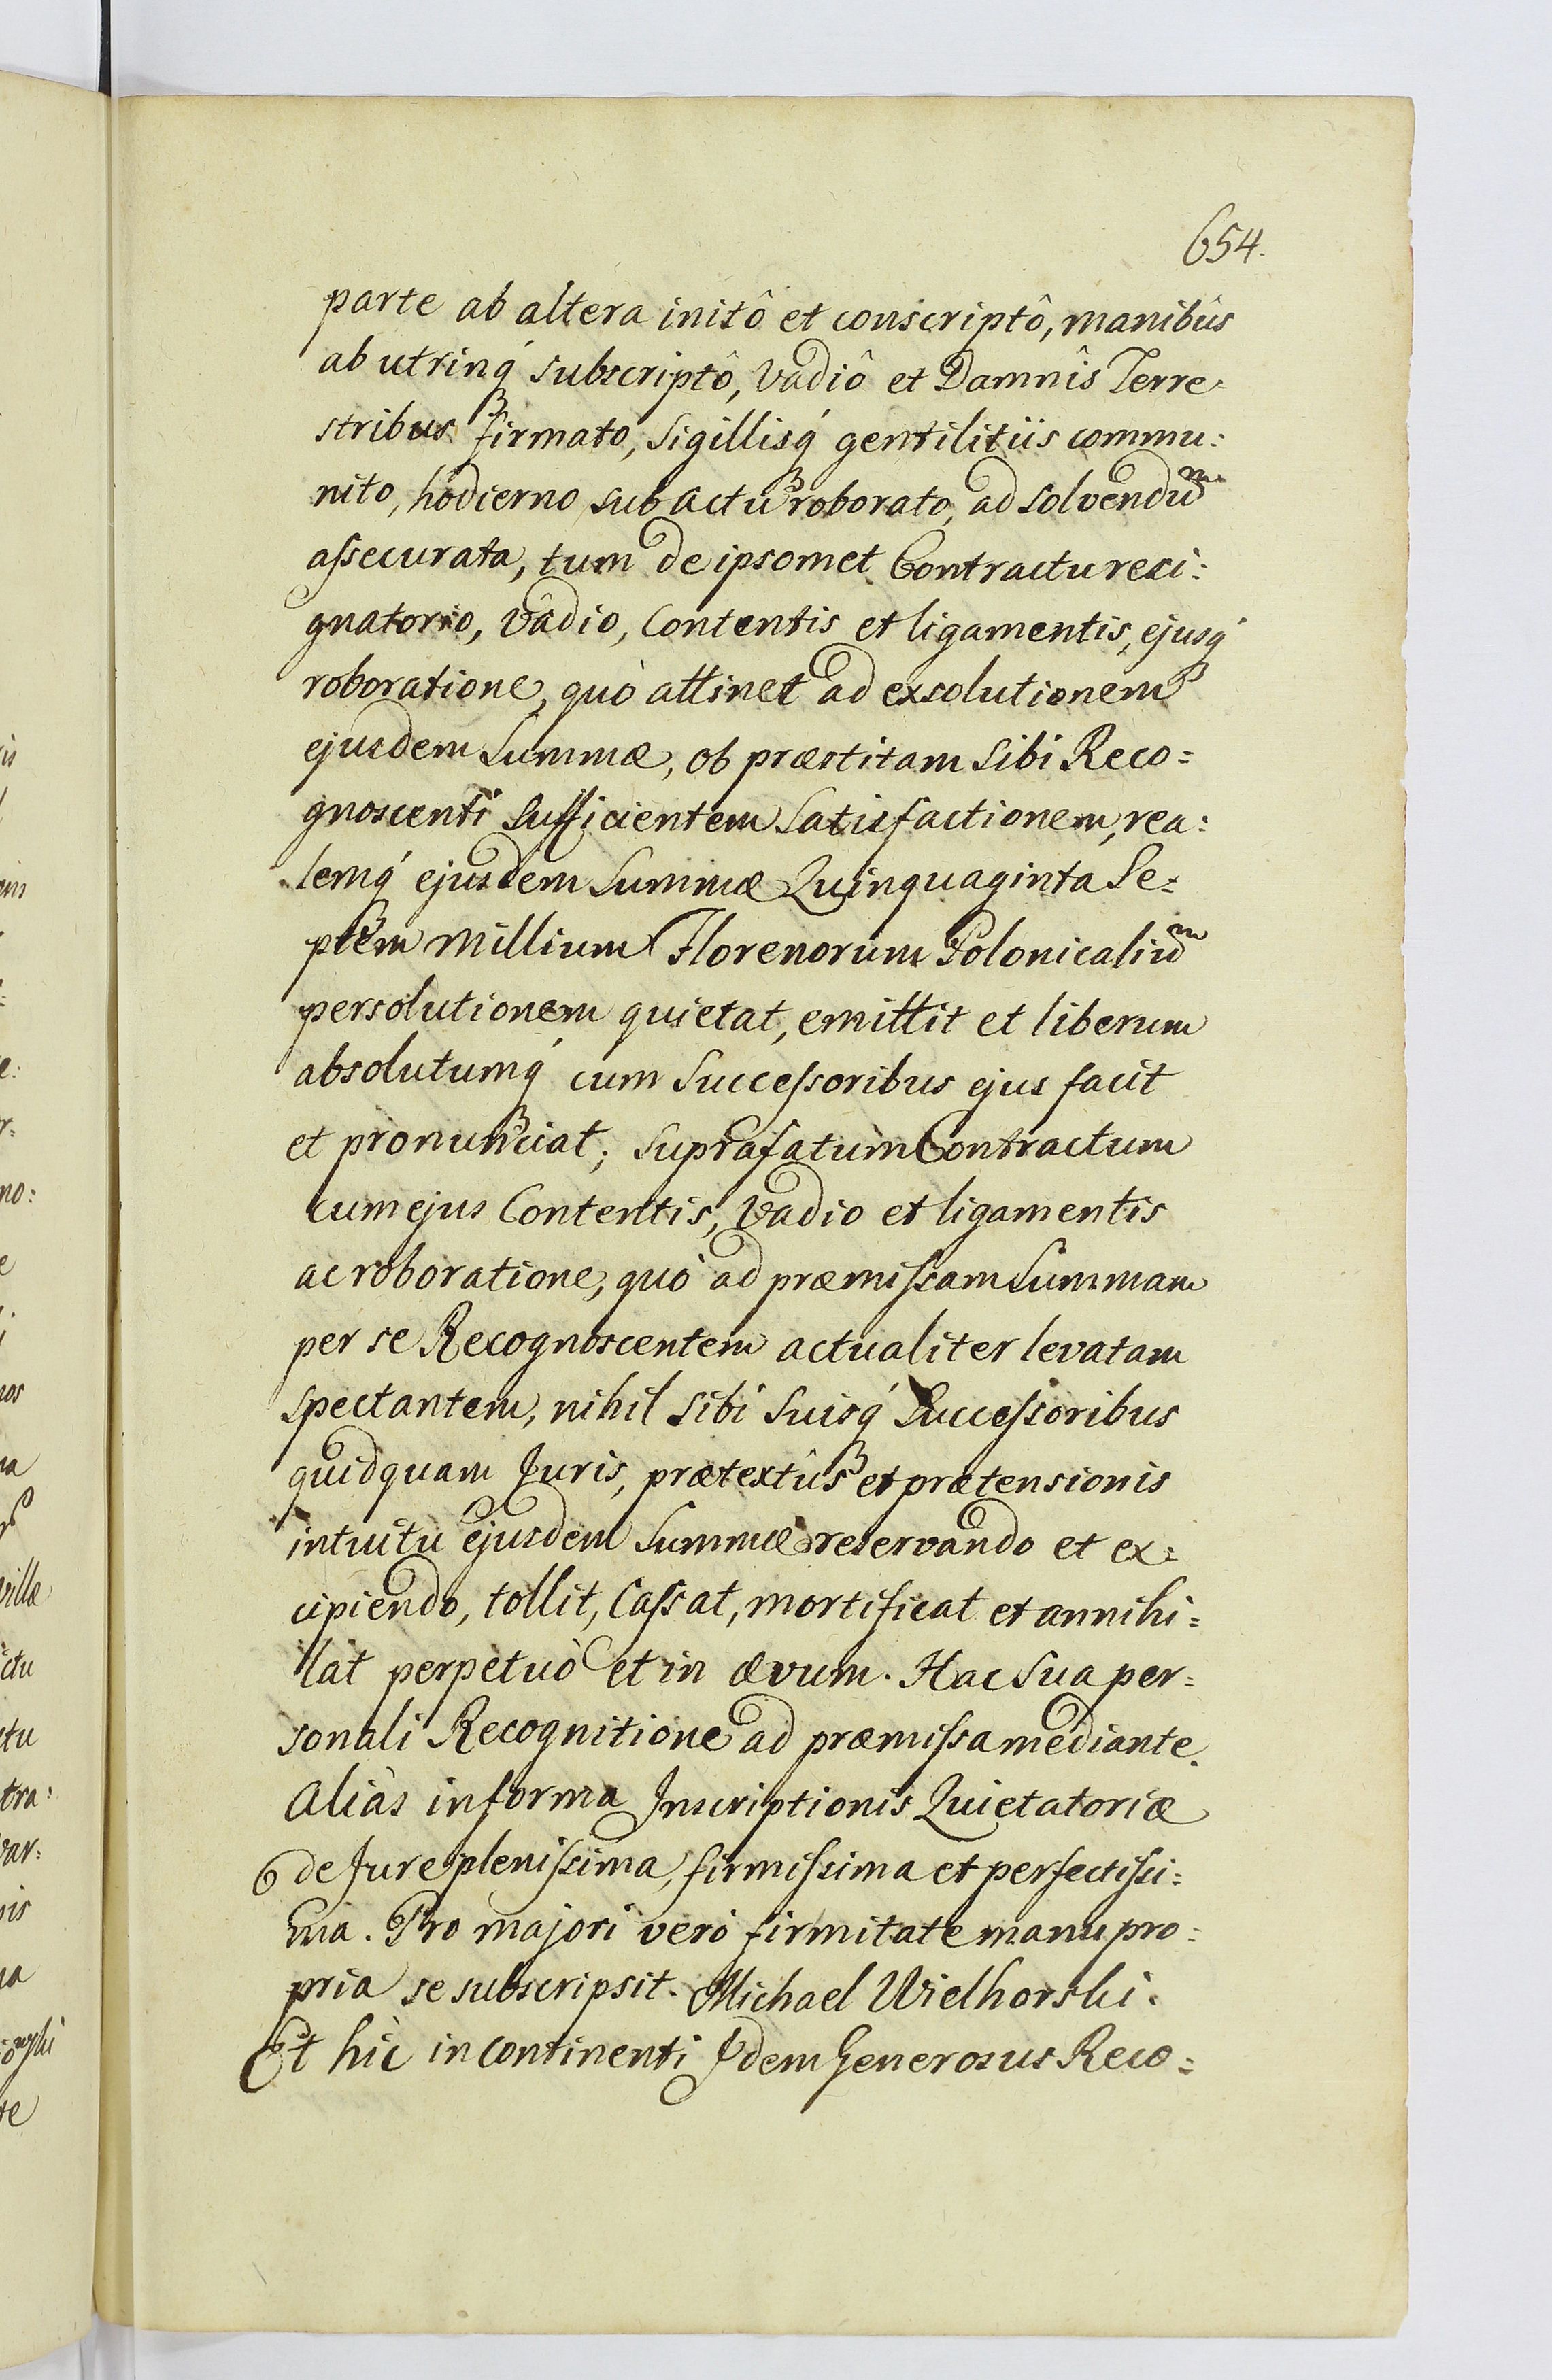 654.
parte ab altera initô et conscriptô, manibûs
ab utrinq́ subscriptô, Vadiô et Damnîs Terre-
stribus firmato, Sigillisq́ gentilitiis commu:
nito, hodierno sub actu roborato, ad solvendum
aſsecurata, tum de ipsomet Contractu resi:
gnatorio, Vadio, Contentis et ligamentis, ejusq́
roboratione, quò attinet ad exsolutionem
ejusdem Summæ, ob præstitam sibi Reco=
gnoscenti Sufficientem Satisfactionem, rea:
lemq́ ejusdem Summæ Quinquaginta Se=
ptem Millium Florenorum Polonicalium
persolutionem quietat, emittit et liberum
absolutumq́ cum Succeſsoribus ejus facit
et pronunciat; Suprafatum Contractum
cum ejus Contentis, Vadio et ligamentis
ac roboratione, quò ad præmiſsam Summam
per se Recognoscentem actualiter levatam
spectantem, nihil sibi Suisq́ Succeſsoribus
quidquam Juris, prætextûs et prætensionis
intuitu ejusdem Summæ reservando et ex=
cipiendo, tollit, Caſsat, mortificat et annihi=
lat perpetuò et in ævum. Hac Sua per=
sonali Recognitione ad præmiſsa mediante.
Aliàs in forma Inscriptionis Quietatoriæ
de Jure pleniſsima, firmiſsima et perfectiſsi=
ma. Pro majori verò firmitate manu pro=
pria se subscripsit. Michael Wielhorski.
Et hìc in Continenti Idem Generosus Reco=